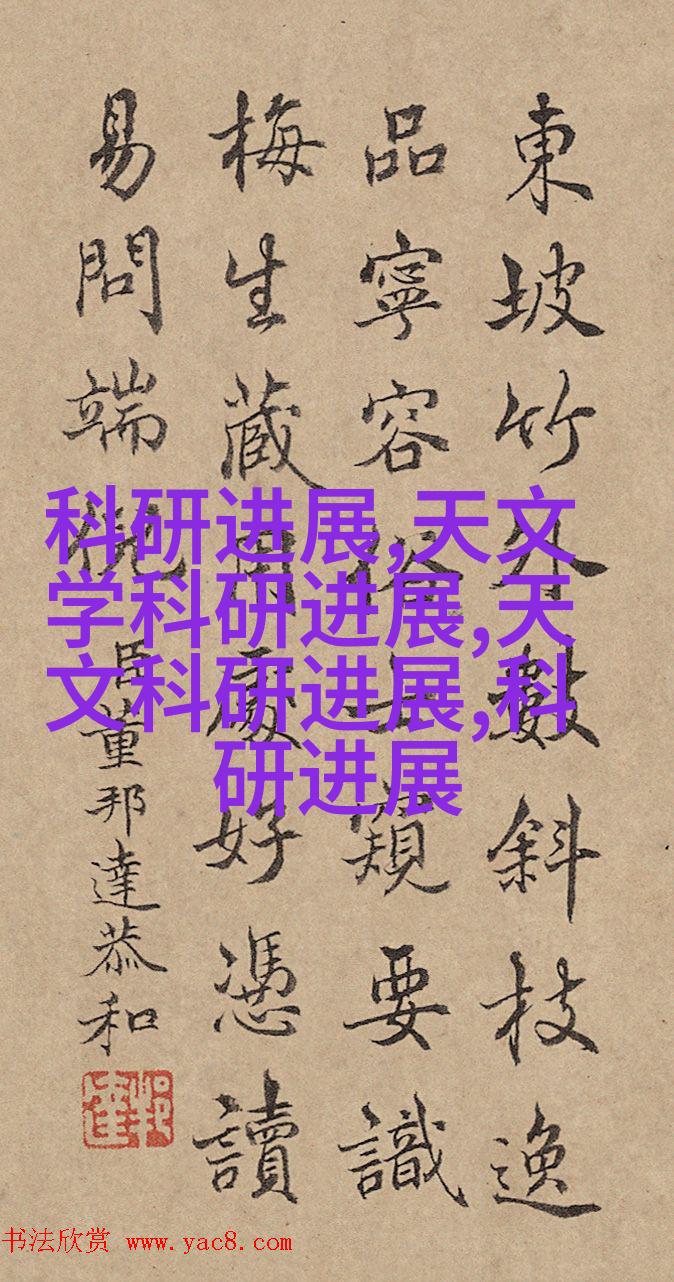 東坡竹外數斜枝逸
品寧容俗窺要識
梅生藏用處好憑讀
易問端倪
臣董邦達恭和
科研进展,天文
学科研进展,天
文科研进展,科
研进展
书法欣赏 www.yac8.com